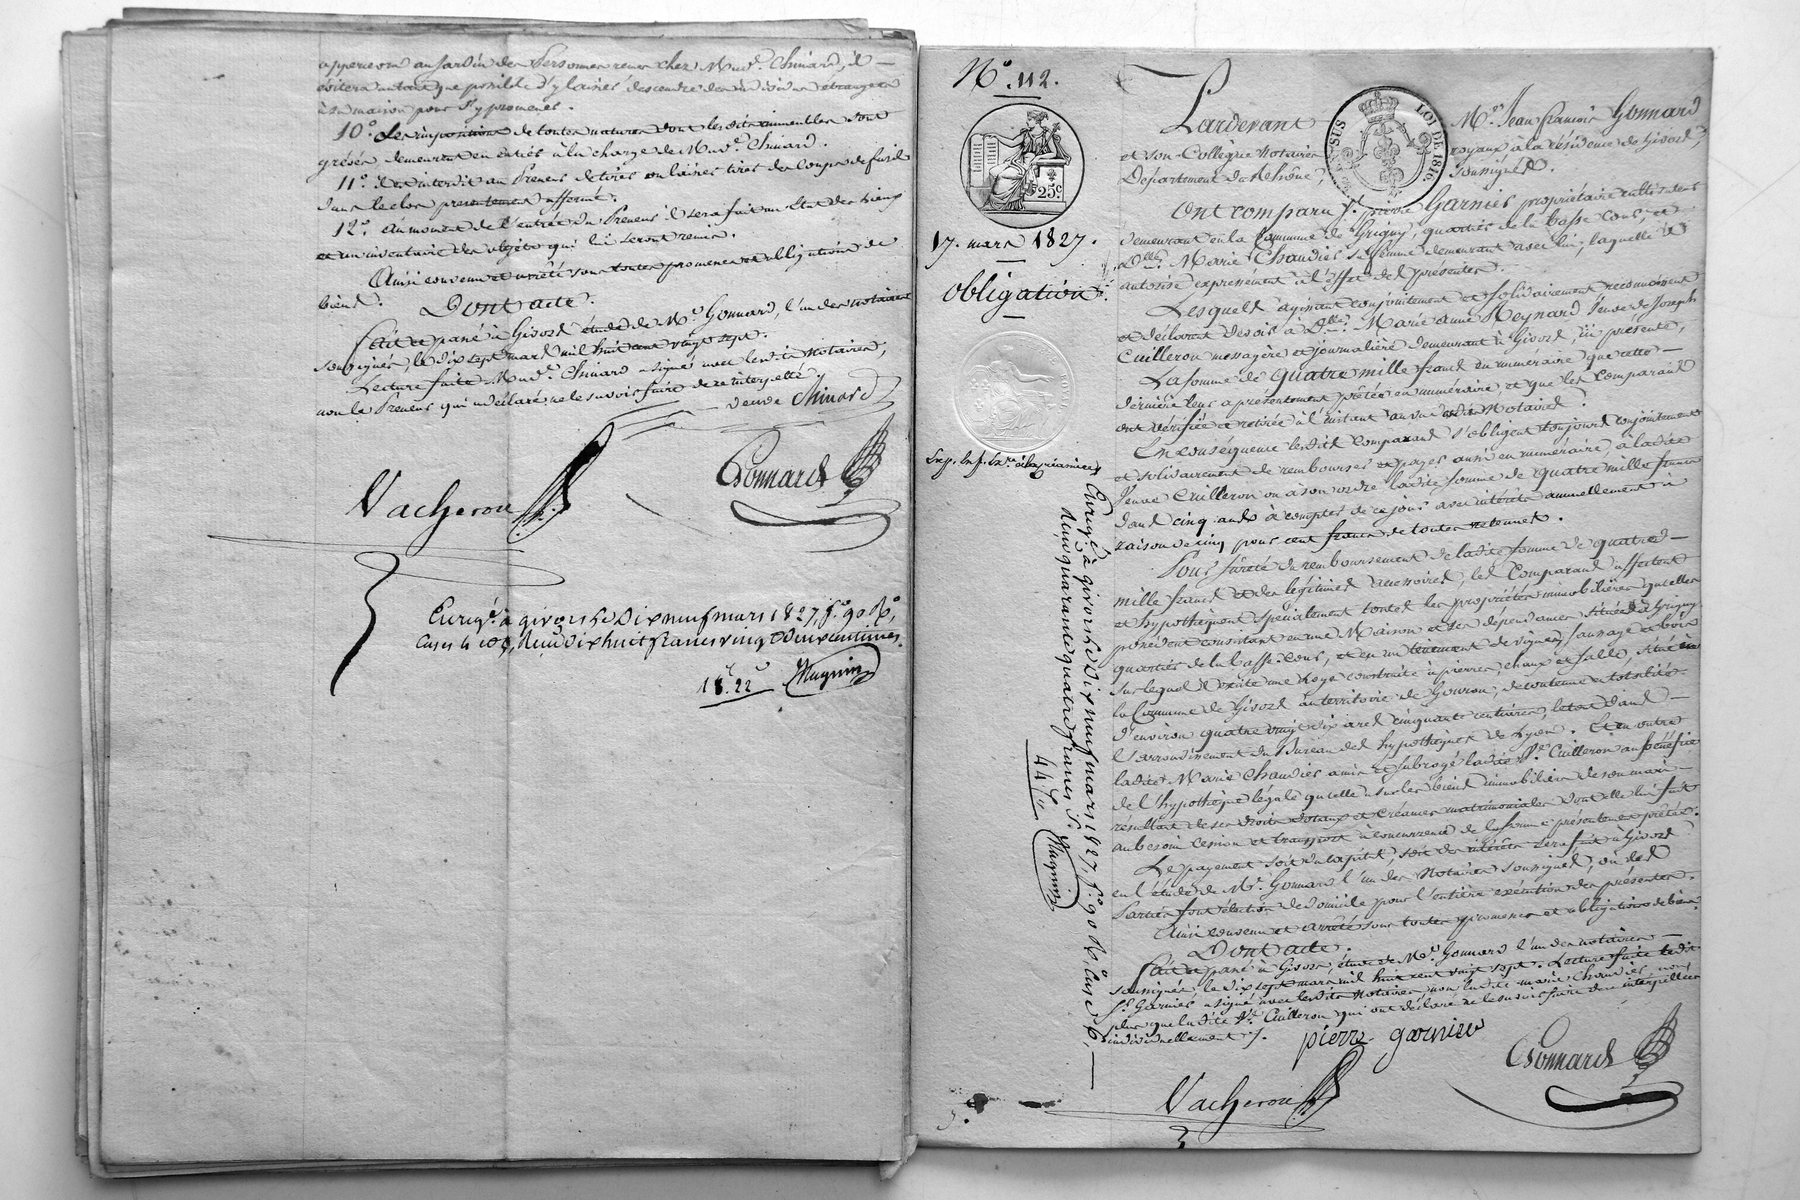 apperçevra au jardin des Personnes reçues chez Mme Ve. Chinard, il
évitera autant que possible d'y laisser descendre des individus étrangers
à sa maison pour s'y promener.
10°. Les impositions de toutes natures dont les dits immeubles sont
grévés demeurent en entier à la charge de Mme Ve. Chinard.
11°. Il est interdit au Preneur de tirer ou laisser tirer des coups de fusil
dans le clos présentement affermé.
12°. au moment de l'entrée du Preneur il sera fait un état des lieux
et un inventaire des objets qui lui seront remis.
Ainsi convenu et arrêté sous toutes promesses et obligations de
biens. Dont acte.
Fait et passé à Givors étude de Me. Gonnard, l'un des notaires
soussignés, le dix sept mars mil huit cent vingt sept.
Lecture faite Mme Ve. Chinard a signé avec les dits Notaires,
non le Preneur qui a déclaré ne le savoir faire de ce interpellé
veuve Chinard
Gonnard
Vacheron
Enregé. à givors le Dix neuf mars 1827, f°. 90 R°.
Cases 4 et 5, Reçu Dix huit francs vingt Deux centimes.
18f. 22c Magnin
N°. 112.
25c
17. mars 1827.
Obligation.
LOI DE 1816.
Pardevant Me. Jean françois Gonnard
et son Collègue Notaires royaux à la résidence de Givors,
Département du Rhône, soussignés.
Ont comparu Sr. pierre Garnier propriétaire cultivateur
demeurant en la Commune de Grigny, quartier de la basse cour, et
Dlle. Marie Chaudier sa femme demeurant avec lui, laquelle il
autorise expressément à l'effet des présentes.
Lesquels agissant conjointement et solidairement reconnoissent
et déclarent devoir à Dlle. Marie Anne Reynard Veuve de Joseph
Cuilleron messagère et journalière demeurant à Givors, ici présente,
La somme de quatre mille francs en numéraire que cette
dernière leur a présentement prêtée en numéraire, et que les Comparans
ont vérifiée et retirée à l'instant au vu des dits Notaires.
En conséquence les dits Comparans s'obligent toujours conjointement
et solidairement de rembourser et payer aussi en numéraire, à la dite
Veuve Cuilleron ou à son ordre la dite somme de quatre mille francs
dans cinq ans à compter de ce jour avec intérêts annuellement à
raison de cinq pour cent francs de toutes retenues.
Pour sûreté du remboursement de la dite somme de quatre
mille francs et des légitimes accessoires, les Comparans affectent
et hypothèquent spécialement toutes les propriétés immobilières qu'elles
possèdent consistant en une Maison et ses dépendances située à Grigny
quartier de la Basse Cour, et en un tenement de vignes, sauvage et bois
sur lequel il existe une loge construite à pierres chaux et sable, situé en
la Commune de Givors au territoire de Gouron, de contenue en totalité
d'environ quatre vingt dix ares cinquante centiares, le tout dans
l'arrondissement du Bureau des hypothèques de Lyon. Et en outre
la dite Marie Chaudier a mis et subrogé la dite Ve. Cuilleron au bénéfice
de l'hypothèque légale qu'elle a sur les biens immobiliers de son mari
résultant de ses droits dotaux et Créances matrimoniales dont elle lui fait
au besoin cession et transport à concurrence de la somme présentement prêtée.
Le payement soit du Capital, soit des intérêts sera fait à Givors
en l'étude de Me. Gonnard l'un des Notaires soussignés, où les
Parties font élection de domicile pour l'entière exécution des présentes.
Ainsi convenu et arrêté sous toutes promesses et obligations de biens.
Dont acte.
Fait et passé à Givors, étude de Me. Gonnard l'un des notaires
soussignés le dix sept mars mil huit cent vingt sept. Lecture faite le dit
Sr. Garnier a signé avec les dits Notaires non la dite marie Chaudier non
plus que la dite Ve. Cuilleron qui ont déclaré ne le savoir faire de ce interpellées
individuellement ./.
pierre garnier
Gonnard
Vacheron
Enregé. à givors le Dix neuf mars 1827, f°. 90 R°. Case 6,
Reçu quarante quatre francs
44 f Magnin